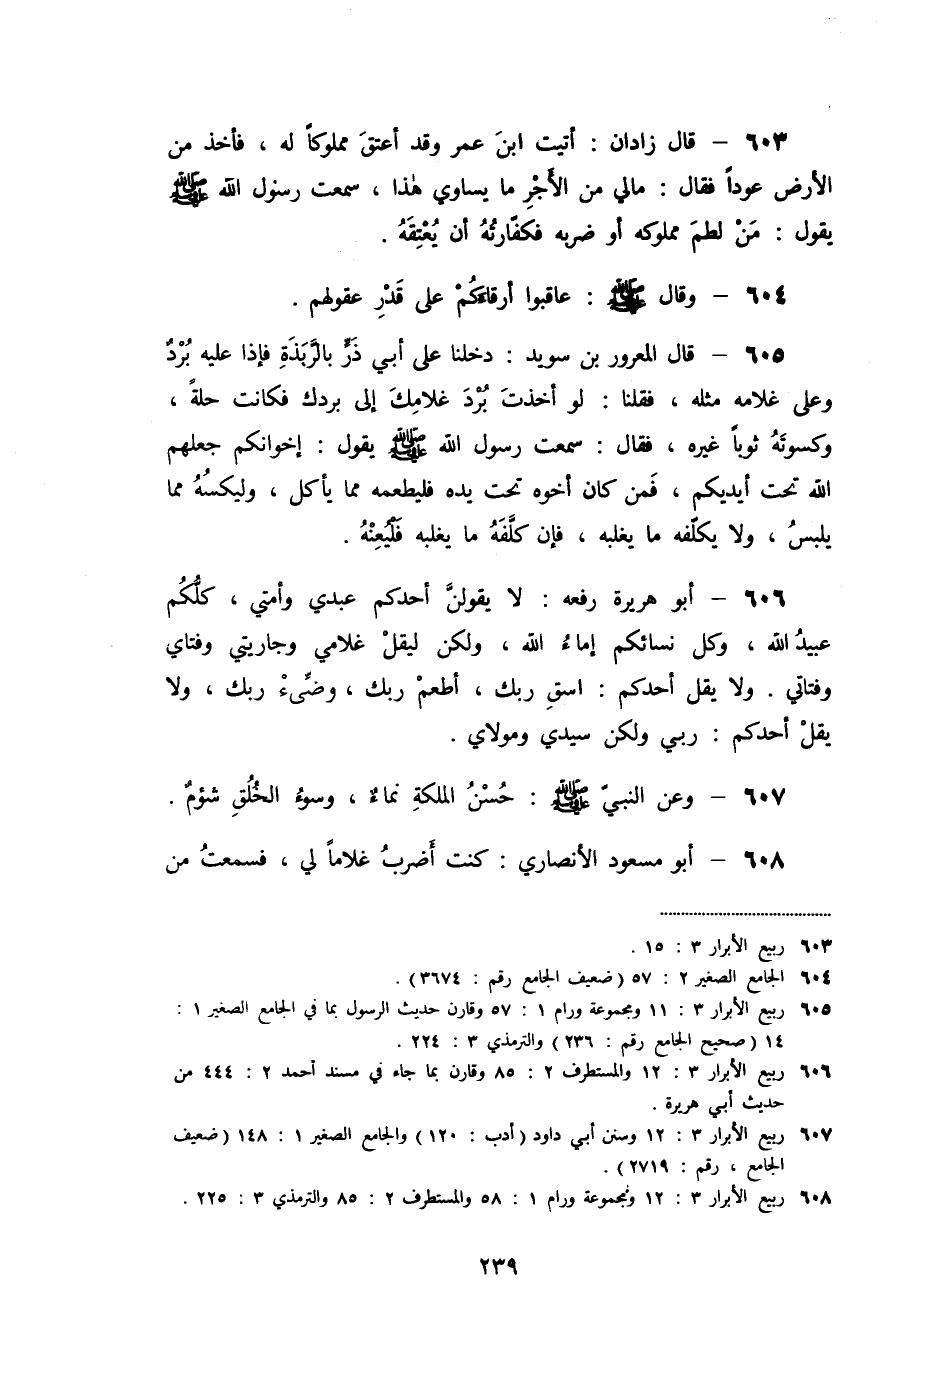 ٦٠٣ – قال زادان : أتيت ابنَ عمر وقد أعتقَ مملوكاً له ، فأخذ من
الأرض عوداً فقال : مالي من الأَجْرِ ما يساوي هٰذا ، سمعت رسول الله ﷺ
يقول : مَنْ لطمَ مملوكه أو ضربه فكفّارتُهُ أن يُعْتِقَهُ .
٦٠٤ – وقال ﷺ : عاقبوا أرقاءَكُمْ على قَدْرِ عقولهم .
٦٠٥ – قال المعرور بن سويد : دخلنا على أبي ذَرٍّ بالرَّبَذَةِ فإذا عليه بُرْدٌ
وعلى غلامه مثله ، فقلنا : لو أخذتَ بُرْدَ غلامِكَ إلى بردك فكانت حلةً ،
وكسوتَهُ ثوباً غيره ، فقال : سمعت رسول الله ﷺ يقول : إخوانكم جعلهم
الله تحت أيديكم ، فَمن كان أخوه تحت يده فليطعمه مما يأكل ، وليكسُهُ مما
يلبسُ ، ولا يكلّفه ما يغلبه ، فإن كلَّفَهُ ما يغلبه فَلْيُعِنْهُ .
٦٠٦ – أبو هريرة رفعه : لا يقولنَّ أحدكم عبدي وأمتي ، كلُّكُم
عبيدُ الله ، وكل نسائكم إماءُ الله ، ولكن ليقلْ غلامي وجاريتي وفتاي
وفتاتي . ولا يقل أحدكم : اسقِ ربك ، أطعمْ ربك ، وضِّىءْ ربك ، ولا
يقلْ أحدكم : ربي ولكن سيدي ومولاي .
٦٠٧ – وعن النبيّ ﷺ : حُسْنُ الملكةِ نماءٌ ، وسوءُ الخُلُقِ شؤمٌ .
٦٠٨ – أبو مسعود الأنصاري : كنت أَضربُ غلاماً لي ، فسمعتُ من
٦٠٣ ربيع الأبرار ٣ : ١٥ .
٦٠٤ الجامع الصغير ٢ : ٥٧ (ضعيف الجامع رقم : ٣٦٧٤) .
٦٠٥ ربيع الأبرار ٣ : ١١ ومجموعة ورام ١ : ٥٧ وقارن حديث الرسول بما في الجامع الصغير ١ :
١٤ (صحيح الجامع رقم : ٢٣٦) والترمذي ٣ : ٢٢٤ .
٦٠٦ ربيع الأبرار ٣ : ١٢ والمستطرف ٢ : ٨٥ وقارن بما جاء في مسند أحمد ٢ : ٤٤٤ من
حديث أبي هريرة .
٦٠٧ ربيع الأبرار ٣ : ١٢ وسنن أبي داود (أدب : ١٢٠) والجامع الصغير ١ : ١٤٨ (ضعيف
الجامع ، رقم : ٢٧١٩) .
٦٠٨ ربيع الأبرار ٣ : ١٢ ومجموعة ورام ١ : ٥٨ والمستطرف ٢ : ٨٥ والترمذي ٣ : ٢٢٥ .
٢٣٩